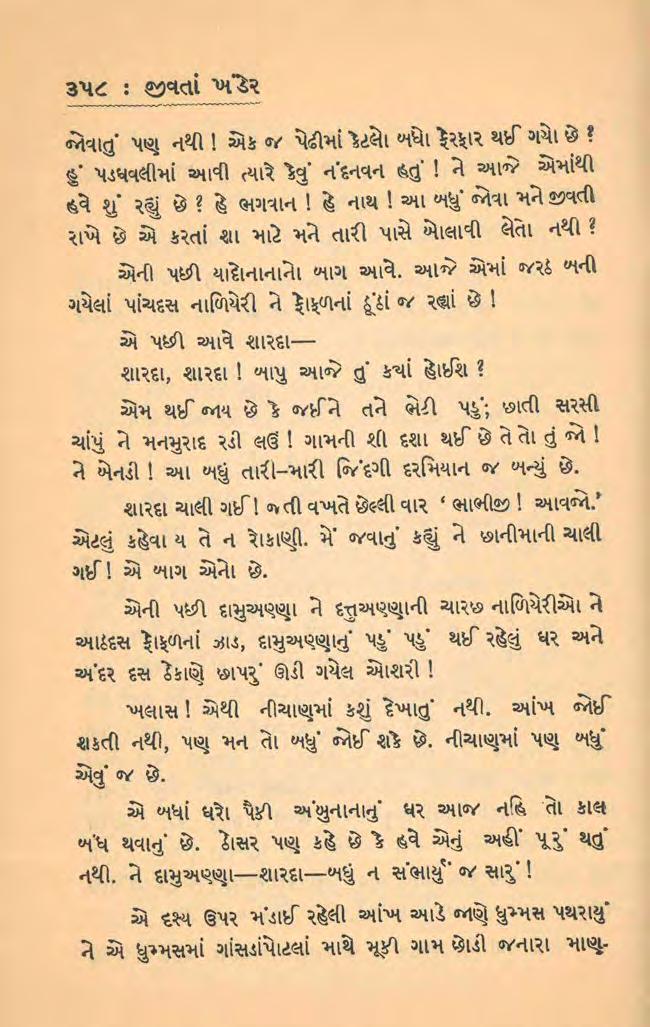 ૩૫૮ : જીવતાં ખંડેર
જોવાતું પણ નથી! એક જ પેઢીમાં કેટલો બધો ફેરફાર થઈ ગયો છે?
હું પડઘવલીમાં આવી ત્યારે કેવું નંદનવન હતું! ને આજે એમાંથી
હવે શું રહ્યું છે? હે ભગવાન! હે નાથ! આ બધું જોવા મને જીવતી
રાખે છે એ કરતાં શા માટે મને તારી પાસે બોલાવી લેતો નથી?
એની પછી યાદોનાનાનો બાગ આવે. આજે એમાં જરઠ બની
ગયેલાં પાંચદસ નાળિયેરી ને ફોફળનાં ઠૂંઠાં જ રહ્યાં છે!
એ પછી આવે શારદા—
શારદા, શારદા! બાપુ આજે તું ક્યાં હોઈશ?
એમ થઈ જાય છે કે જઈને તને ભેટી પડું; છાતી સરસી
ચાંપું ને મનમુરાદ રડી લઉં! ગામની શી દશા થઈ છે તે તો તું જો!
ને બેનડી! આ બધું તારી–મારી જિંદગી દરમિયાન જ બન્યું છે.
શારદા ચાલી ગઈ! જતી વખતે છેલ્લી વાર ‘ ભાભીજી! આવજો.’
એટલું કહેવા ય તે ન રોકાણી. મેં જવાનું કહ્યું ને છાનીમાની ચાલી
ગઈ! એ બાગ એનો છે.
એની પછી દામુઅણ્ણા ને દત્તુઅણ્ણાની ચારછ નાળિયેરીઓ ને
આઠદસ ફોફળનાં ઝાડ, દામુઅણ્ણાનું પડું પડું થઈ રહેલું ઘર અને
અંદર દસ ઠેકાણે છાપરું ઊડી ગયેલ ઓશરી!
ખલાસ! એથી નીચાણમાં કશું દેખાતું નથી. આંખ જોઈ
શકતી નથી, પણ મન તો બધું જોઈ શકે છે. નીચાણમાં પણ બધું
એવું જ છે.
એ બધાં ઘરો પૈકી અંબુનાનાનું ઘર આજ નહિ તો કાલ
બંધ થવાનું છે. ઠોસર પણ કહે છે કે હવે એનું અહીં પૂરું થતું
નથી. ને દામુઅણ્ણા—શારદા—બધું ન સંભાર્યું જ સારું!
એ દૃશ્ય ઉપર મંડાઈ રહેલી આંખ આડે જાણે ધુમ્મસ પથરાયું
ને એ ધુમ્મસમાં ગાંસડાંપોટલાં માથે મૂકી ગામ છોડી જનારા માણ-